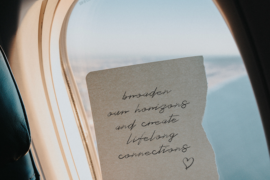 broaden
our horizons
and create
lifelong
connections